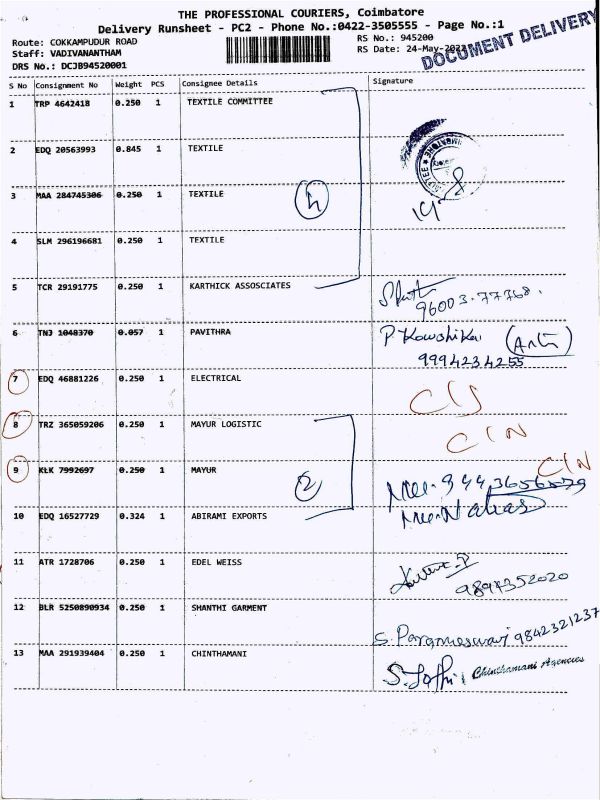 THE PROFESSIONAL COURIERS, Coimbatore
Delivery Runsheet - PC2 - Phone No.:0422-3505555 - Page No.:1
Route: COKKAMPUDUR ROAD
RS No.: 945200
Staff: VADIVANANTHAM
RS Date: 24-May-2023
DRS No.: DCJB94520001
DOCUMENT DELIVERY
S No Consignment No Weight PCS Consignee Details Signature
1 TRP 4642418 0.250 1 TEXTILE COMMITTEE
2 EDQ 20563993 0.845 1 TEXTILE
3 MAA 284745306 0.250 1 TEXTILE
4 SLM 296196681 0.250 1 TEXTILE
5 TCR 29191775 0.250 1 KARTHICK ASSOSCIATES
96003-77768.
6 TNJ 1048370 0.057 1 PAVITHRA P. Kowshika
9994234255
7 EDQ 46881226 0.250 1 ELECTRICAL
8 TRZ 365059206 0.250 1 MAYUR LOGISTIC CIN
9 KLK 7992697 0.250 1 MAYUR 2 CIN
9443656579
10 EDQ 16527729 0.324 1 ABIRAMI EXPORTS
11 ATR 1728706 0.250 1 EDEL WEISS
9894352020
12 BLR 5250890934 0.250 1 SHANTHI GARMENT
S. Parameswari 9842321237
13 MAA 291939404 0.250 1 CHINTHAMANI
Chinthamani Agencies